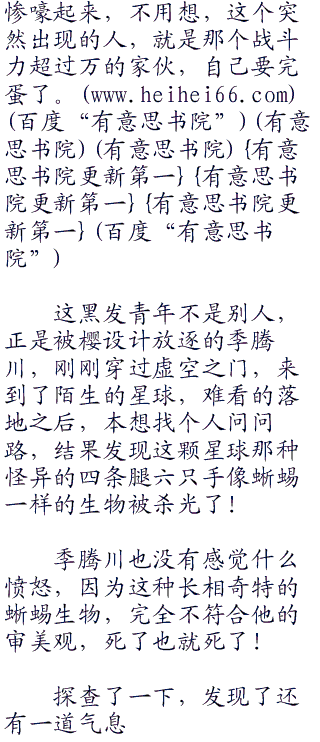 惨嚎起来，不用想，这个突
然出现的人，就是那个战斗
力超过万的家伙，自己要完
蛋了。(www.heihei66.com)
(百度“有意思书院”)(有意
思书院)(有意思书院){有意
思书院更新第一}{有意思书
院更新第一}{有意思书院更
新第一}(百度“有意思书
院”)
这黑发青年不是别人，
正是被樱设计放逐的季腾
川，刚刚穿过虚空之门，来
到了陌生的星球，难看的落
地之后，本想找个人问问
路，结果发现这颗星球那种
怪异的四条腿六只手像蜥蜴
一样的生物被杀光了！
季腾川也没有感觉什么
愤怒，因为这种长相奇特的
蜥蜴生物，完全不符合他的
审美观，死了也就死了！
探查了一下，发现了还
有一道气息